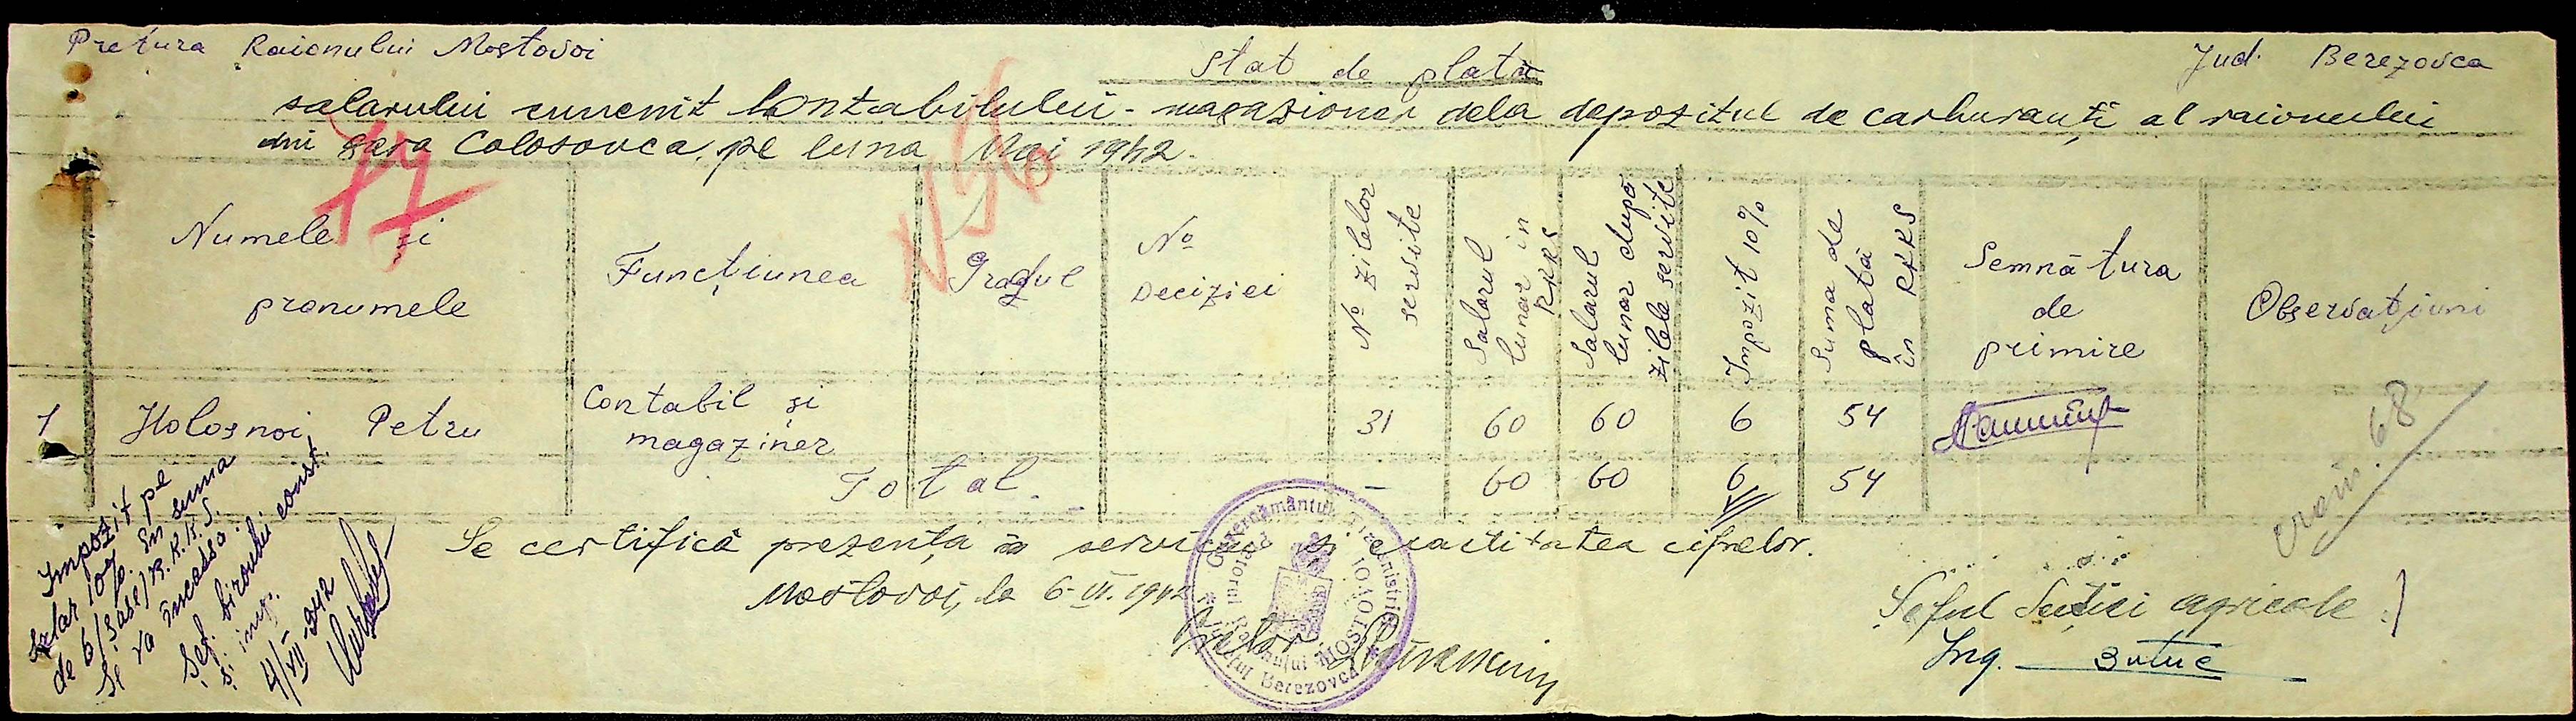 Pretura Raionului Mostovoi
Jud. Berezovca
Stat de plată
salarului cuvenit contabilului-magazioner dela depozitul de carburanți al raionului
din gara Colosovca, pe luna Mai 1942.
77
N 56
Numele și pronumele
Funcțiunea
Gradul
No Deciziei
No zilelor servite
Salarul lunar in RKKS
Salarul lunar dupo zilele servite
Impozit 10%
Suma de plată în RKKS
Semnătura de primire
Observațiuni
1 Holosnoi Petru Contabil și magaziner 31 60 60 6 54
Total - 60 60 6 54
68
Se certifică prezența in serviciu și exactitatea cifrelor.
Mostovoi, la 6-VI.1942
Pretor
Guvernământul Transnistriei
Județul Berezovca
Pretorul Raionului MOSTOVOI
Șeful Secției agricole
Ing. Butuc
Impozit pe
salar 10% în suma
de 6/șase/R.K.K.S.
se va încassa.
Șef. biroului const.
și imp.
4/VII-942